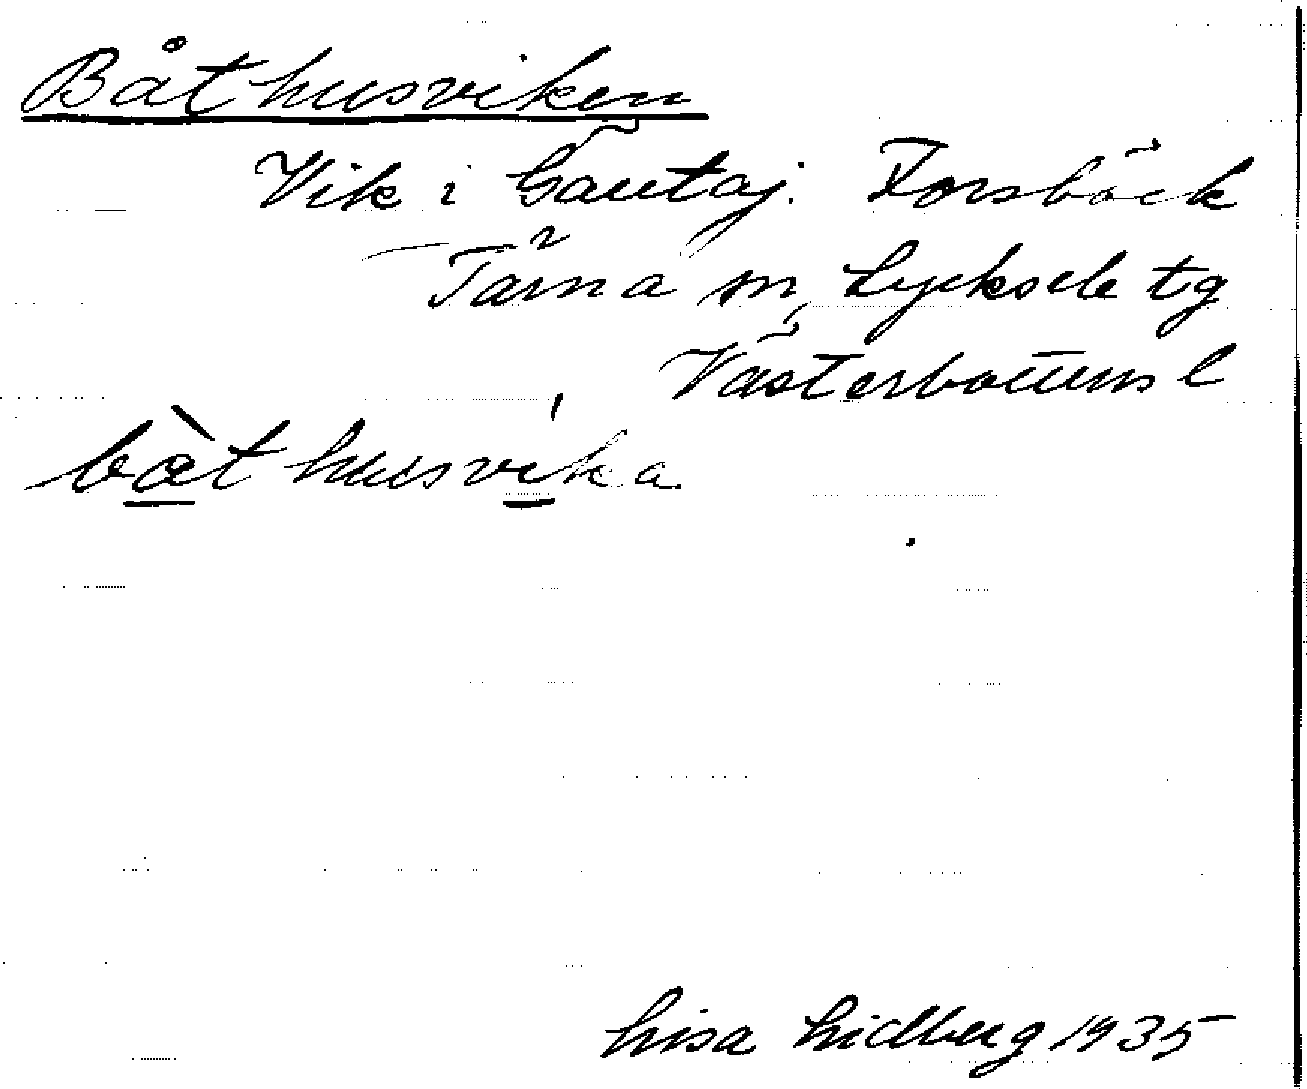 Båthusviken
Vik i Gäutaj. Forsbäck
Tärna sn, Lycksele tg
Västerbottens l
bàthusvíka
Lisa Lidberg 1935